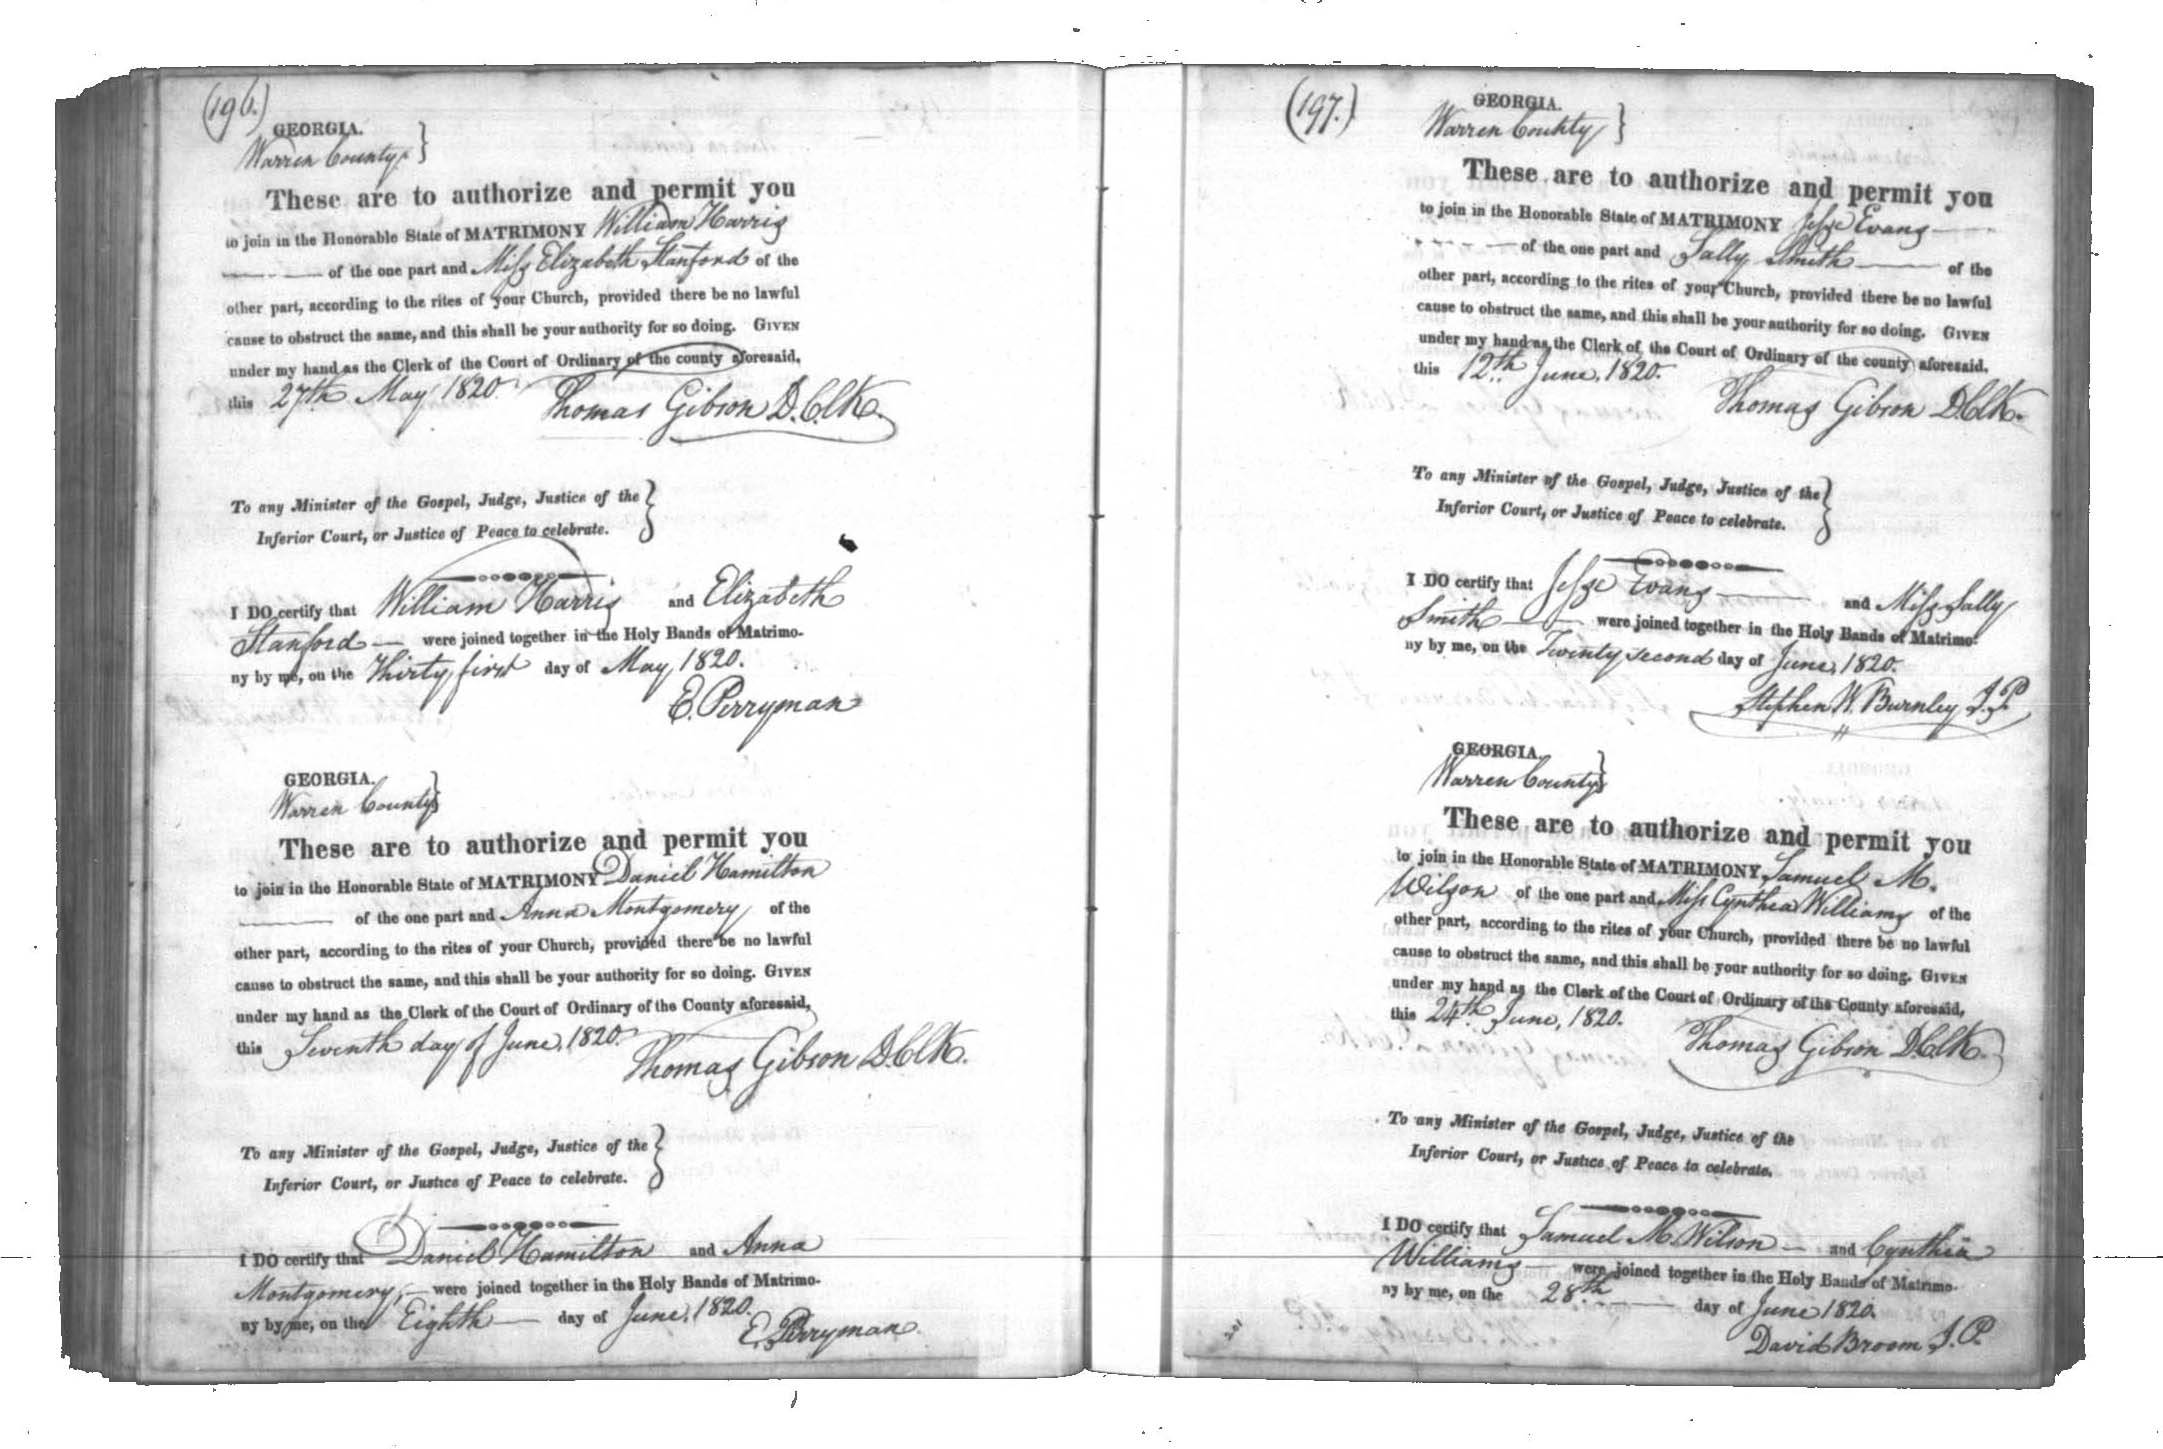 (196.)
GEORGIA.
Warren County }
These are to authorize and permit you
to join in the Honorable State of MATRIMONY William Harris
of the one part and Miss Elizabeth Stanford of the
other part, according to the rites of your Church, provided there be no lawful
cause to obstruct the same, and this shall be your authority for so doing. GIVEN
under my hand as the Clerk of the Court of Ordinary of the county aforesaid,
this 27th May 1820. Thomas Gibson D.ClK.
To any Minister of the Gospel, Judge, Justice of the }
Inferior Court, or Justice of Peace to celebrate.
I DO certify that William Harris and Elizabeth
Stanford — were joined together in the Holy Bands of Matrimo-
ny by me, on the Thirty first day of May, 1820.
E. Perryman
GEORGIA.
Warren County }
These are to authorize and permit you
to join in the Honorable State of MATRIMONY Daniel Hamilton
of the one part and Anna Montgomery of the
other part, according to the rites of your Church, provided there be no lawful
cause to obstruct the same, and this shall be your authority for so doing. GIVEN
under my hand as the Clerk of the Court of Ordinary of the County aforesaid,
this Seventh day of June, 1820. Thomas Gibson D.ClK.
To any Minister of the Gospel, Judge, Justice of the }
Inferior Court, or Justice of Peace to celebrate.
I DO certify that Daniel Hamilton and Anna
Montgomery, — were joined together in the Holy Bands of Matrimo-
ny by me, on the Eighth — day of June, 1820.
E. Perryman
(197.)
GEORGIA.
Warren County }
These are to authorize and permit you
to join in the Honorable State of MATRIMONY Jesse Evans —
— of the one part and Sally Smith — of the
other part, according to the rites of your Church, provided there be no lawful
cause to obstruct the same, and this shall be your authority for so doing. GIVEN
under my hand as the Clerk of the Court of Ordinary of the county aforesaid.
this 12th June, 1820. Thomas Gibson D.ClK.
To any Minister of the Gospel, Judge, Justice of the }
Inferior Court, or Justice of Peace to celebrate.
I DO certify that Jesse Evans — and Miss Sally
Smith — were joined together in the Holy Bands of Matrimo-
ny by me, on the Twenty second day of June, 1820.
Stephen W. Burnley J.P.
GEORGIA.
Warren County }
These are to authorize and permit you
to join in the Honorable State of MATRIMONY Samuel M.
Wilson of the one part and Miss Cynthea Williams of the
other part, according to the rites of your Church, provided there be no lawful
cause to obstruct the same, and this shall be your authority for so doing. GIVEN
under my hand as the Clerk of the Court of Ordinary of the County aforesaid,
this 24th June, 1820. Thomas Gibson D.ClK.
To any Minister of the Gospel, Judge, Justice of the
Inferior Court, or Justice of Peace to celebrate.
I DO certify that Samuel M. Wilson — and Cynthia
Williams — were joined together in the Holy Bands of Matrimo-
ny by me, on the 28th — day of June 1820.
David Broom J.P.
201